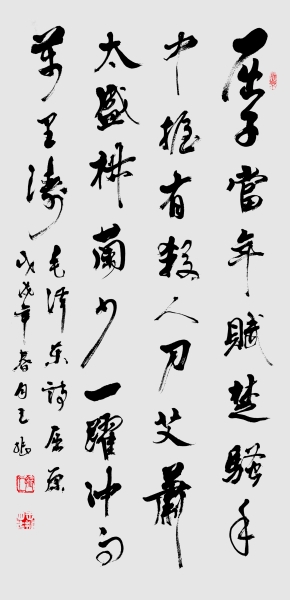 屈子當年賦楚騷手
中握有殺人刀艾蕭
太盛椒蘭少一躍冲向
萬里濤
毛澤東詩屈原
戊戌年春月